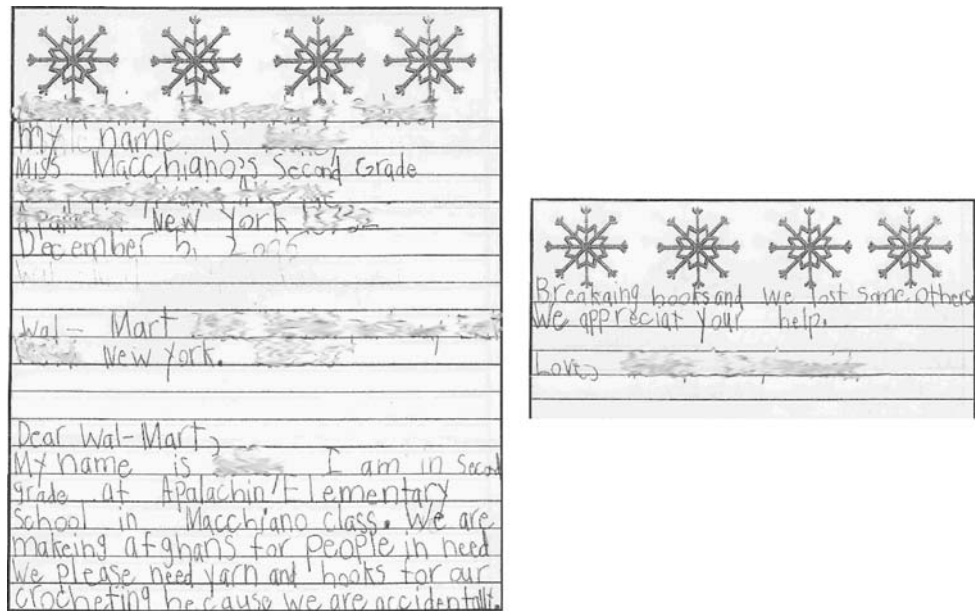 My name is
Miss Macchiano's Second Grade
New York
December
Wal-Mart
New York.
Dear Wal-Mart,
My name is I am in Second
grade at Apalachin Elementary
School in Macchiano class. We are
makeing afghans for people in need
We please need yarn and hooks for our
crocheting because we are accidentally
Breakaing hooks and we lost some others
We appreciat your help.
Love,